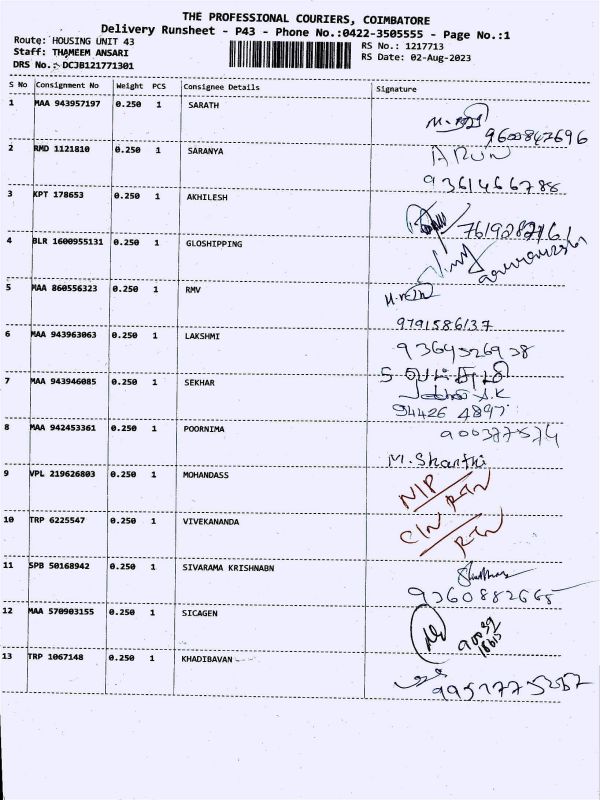 THE PROFESSIONAL COURIERS, COIMBATORE
Delivery Runsheet - P43 - Phone No.:0422-3505555 - Page No.:1
Route: HOUSING UNIT 43
RS No.: 1217713
Staff: THAMEEM ANSARI
RS Date: 02-Aug-2023
DRS No.: DCJB121771301
S No Consignment No Weight PCS Consignee Details Signature
1 MAA 943957197 0.250 1 SARATH
9600847696
2 RMD 1121810 0.250 1 SARANYA ARUN
9361466788
3 KPT 178653 0.250 1 AKHILESH
7619282161
4 BLR 1600955131 0.250 1 GLOSHIPPING
5 MAA 860556323 0.250 1 RMV
9791586137
6 MAA 943963063 0.250 1 LAKSHMI
9364526938
7 MAA 943946085 0.250 1 SEKHAR
94426 4897
8 MAA 942453361 0.250 1 POORNIMA 900377574
M. Shanthi
9 VPL 219626803 0.250 1 MOHANDASS
N/P RTN
10 TRP 6225547 0.250 1 VIVEKANANDA
C/N RTN
11 SPB 50168942 0.250 1 SIVARAMA KRISHNABN
9360882665
12 MAA 570903155 0.250 1 SICAGEN
90039
18615
13 TRP 1067148 0.250 1 KHADIBAVAN
9951775257